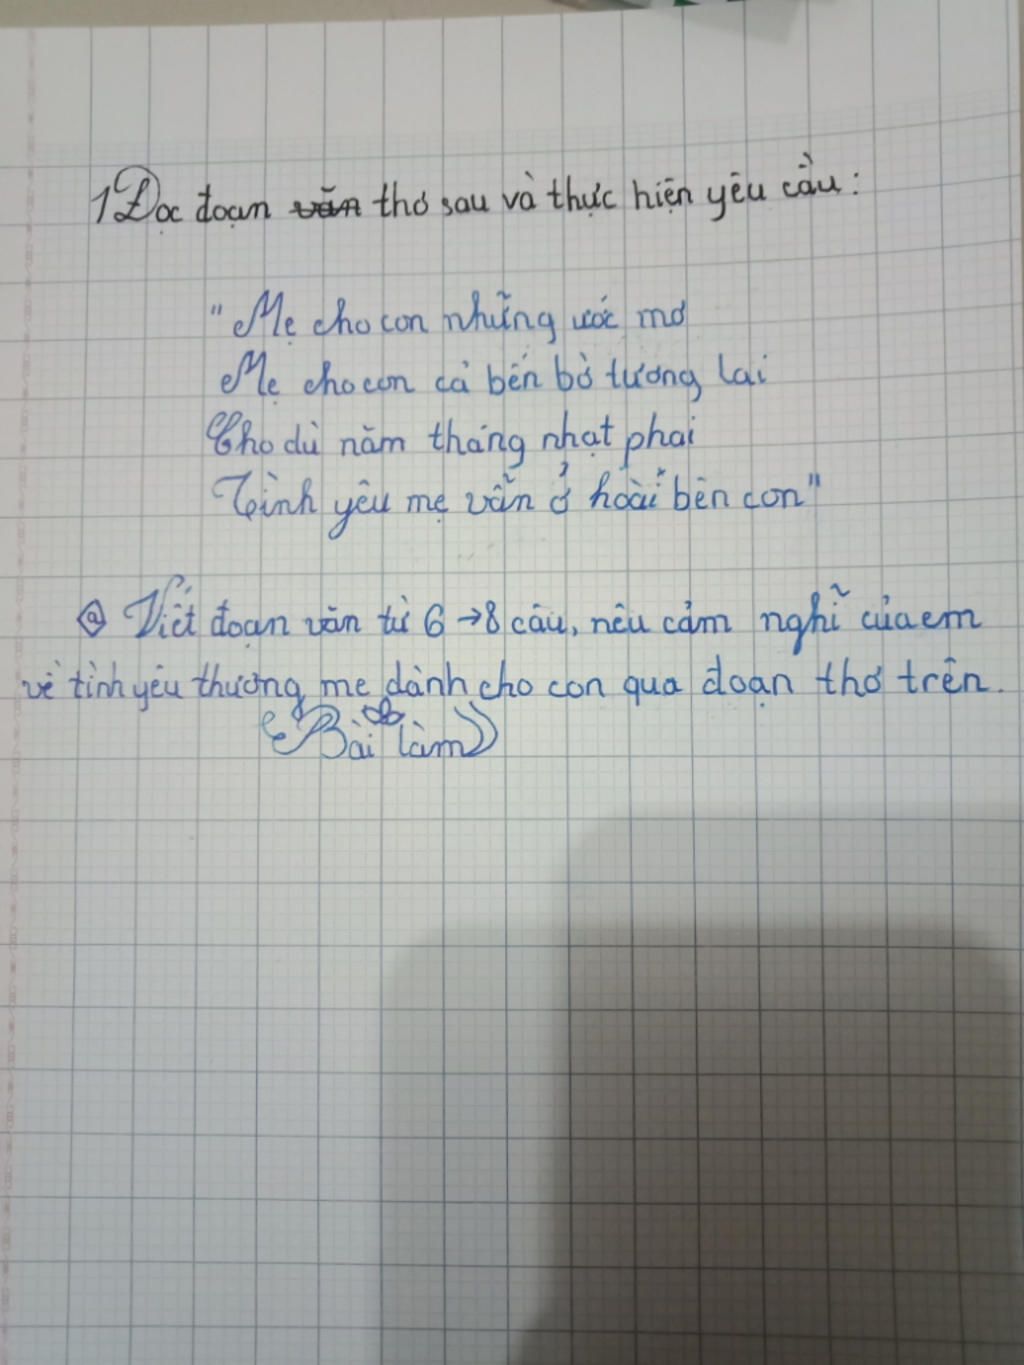 1 Đọc đoạn văn thơ sau và thực hiện yêu cầu:
"Mẹ cho con những ước mơ
Mẹ cho con cả bến bờ tương lai
Cho dù năm tháng nhạt phai
Tình yêu mẹ vẫn ở hoài bên con"
@ Viết đoạn văn từ 6 → 8 câu, nêu cảm nghĩ của em
về tình yêu thương mẹ dành cho con qua đoạn thơ trên.
Bài làm